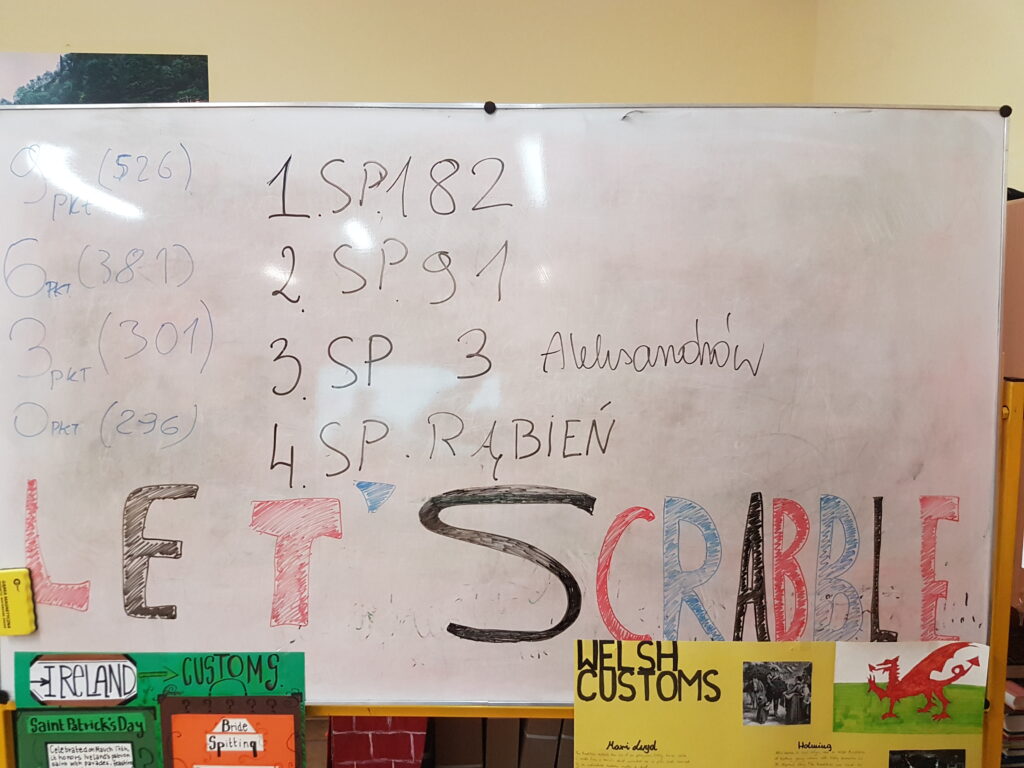 9 PKT (526) 1. SP.182
6 PKT (381) 2. SP. 91
3 PKT (301) 3. SP 3 Aleksandrów
0 PKT (296) 4. SP. RĄBIEŃ
LET'SCRABBLE
IRELAND → CUSTOMS
Saint Patrick's Day
Celebrated on March 17th,
it honors Ireland's patron
saint with parades, feasting
Bride
Spitting
WELSH
CUSTOMS
Mari Lwyd